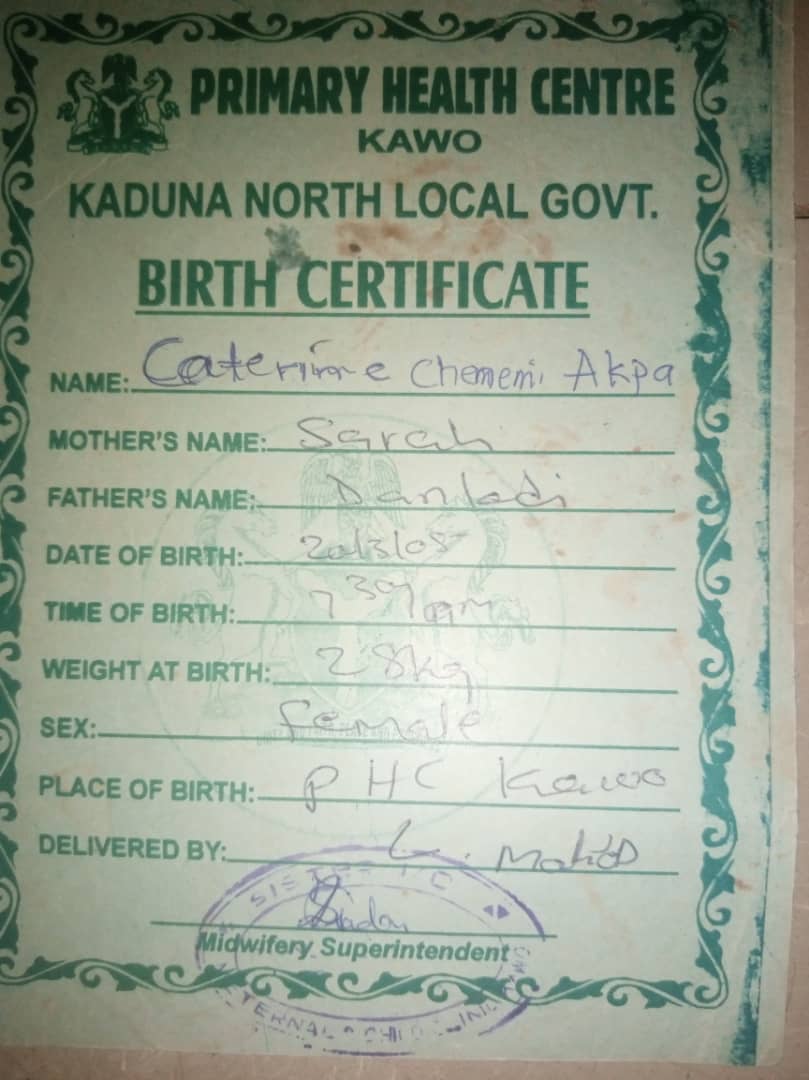 PRIMARY HEALTH CENTRE
KAWO
KADUNA NORTH LOCAL GOVT.
BIRTH CERTIFICATE
NAME: Caterine Chememi Akpa
MOTHER'S NAME: Sarah
FATHER'S NAME: Danladi
DATE OF BIRTH: 20/3/05
TIME OF BIRTH: 7 30
WEIGHT AT BIRTH: 2 8kg
SEX: female
PLACE OF BIRTH: PHC Kawo
DELIVERED BY: L. Moh'd
SISTER I/C
Midwifery Superintendent